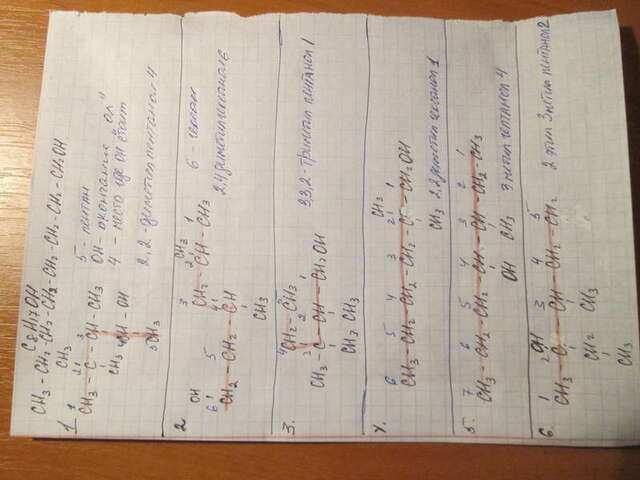 C8H17OH
CH3-CH2-CH2-CH2-CH2-CH2-CH2-CH2OH
1
CH3
1 2 3
CH3-C-CH-CH3
CH3 CH-OH
5CH3
5 - пентан
OH - окончание "ол"
4 - место где он стоит
2,2-диметил пентанол 4
2
3 CH3 2 1
CH2-CH-CH3
OH
6 5 4
CH2-CH2-CH
CH3
6 - гексан
2,4 диметилгексанол 6
3.
4 5
CH2-CH3
3 2 1
CH3-C-CH-CH2OH
CH3 CH3
3,3,2-триметил пентанол 1
4.
CH3
6 5 4 3 2 1
CH3-CH2-CH2-CH2-C-CH2OH
CH3
2,2 диметил гексанол 1
5.
7 6 5 4 3 2 1
CH3-CH2-CH2-CH-CH-CH2-CH3
OH CH3
3 метил гептанол 4
6.
1 2 OH 3 4 5
CH3-C-CH-CH2-CH2
CH2 CH3
CH3
2 этил 3 метил пентанол 2